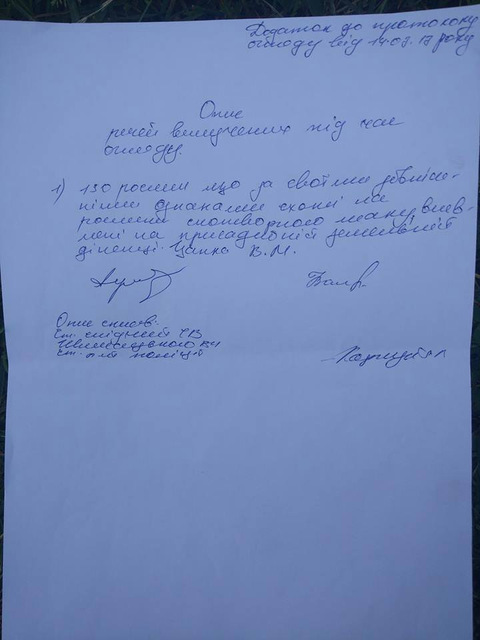 Додаток до протоколу
огляду від 14.03.17 року
Опис
речей вилучених під час
огляду.
1) 130 рослин що за своїми зовніш-
німи ознаками схожі на
рослини снотворного маку,
мені на присадибній земельній
ділянці Цапко В.М.
Опис склав:
ст. слідчий СВ
ст. л-т поліції